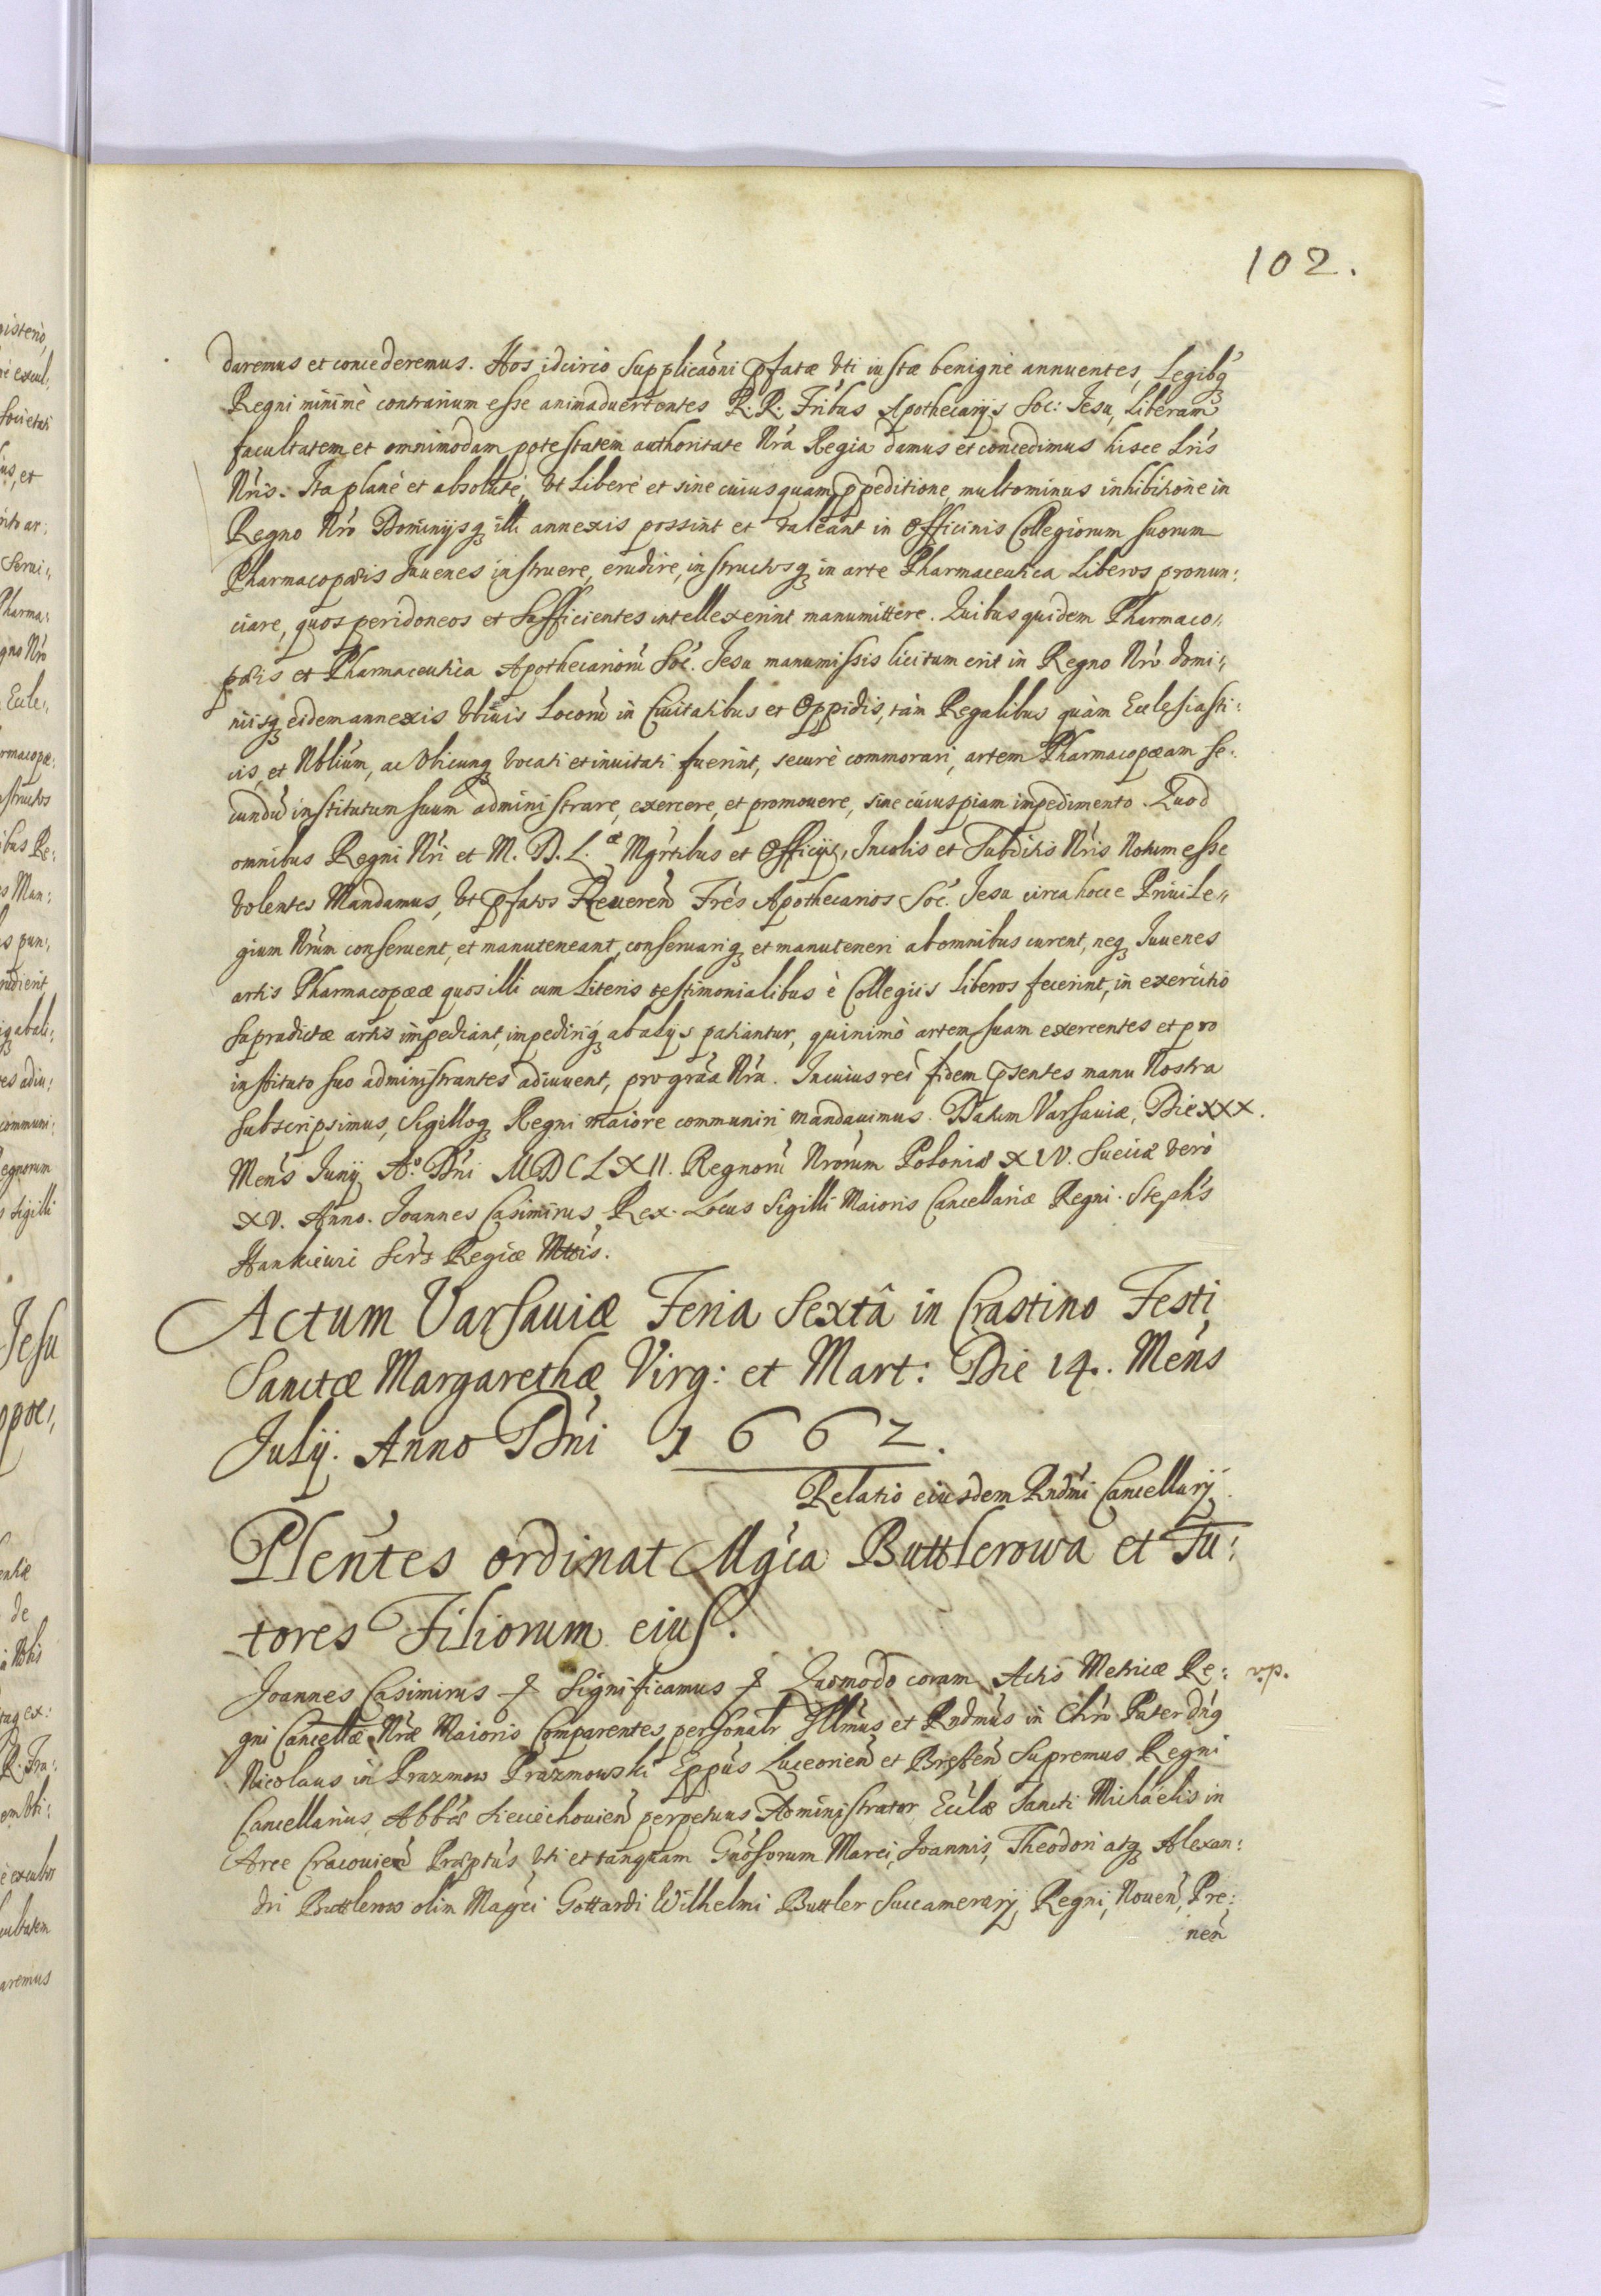 102.
daremus et concederemus. Nos idcirco Supplicãoni pfatæ Vti iustæ benignè annuentes, Legibq
Regni minimè contrarium esse animaduertentes R. R. Fribus Apothecarijs Soc: Iesu, Liberam
facultatem et omnimodam potestatem authoritate Nrã Regia damus et concedimus hisce Lris
Nris. Ita planè et absolutè, Vt Liberè et sine cuiusquam ppeditione, multominus inhibitione in
Regno Nro Dominijsq illi annexis possint et valeant in Officinis Collegiorum suorum
Pharmacopæis Iuuenes instruere, erudire, instructosq in arte Pharmaceutica Liberos pronun:
ciare, quos peridoneos et Sufficientes intellexerint manumittere. Quibus quidem Pharmaco,,
pæis et Pharmaceutica Apothecariorũ Soc. Iesu manumissis licitum erit in Regno Nro domi,,
nijsq eidem annexis Vbiuis Locorũ in Ciuitatibus et Oppidis, tàm Regalibus quàm Ecclesiasti:
cis, et Nblium, ac Vbicunq vocati et inuitati fuerint, securè commorari, artem Pharmacopæam se:
cundũ institutum suum administrare, exercere, et promouere, sine cuiuspiam impedimento. Quod
omnibus Regni Nri et M. D. L. æ Mgrtibus et Officijs, Incolis et Subditis Nris Notum esse
Volentes Mandamus, Vt pfatos Reuerend Frès Apothecarios Soc. Iesu circa hocce Priuile,,
gium Nrum conseruent, et manuteneant, conseruariq et manuteneri ab omnibus curent, neq Iuuenes
artis Pharmacopææ quos illi cum Literis testimonialibus è Collegiis Liberos fecerint, in exercitio
supradictæ artis impediant, impediriq ab alijs patiantur, quinimò artem suam exercentes et pro
instituto suo administrantes adiuuent, pro grãa Nra. In cuius rei fidem psentes manu Nostra
subscripsimus, Sigilloq Regni maiore communiri mandauimus. Datum Varsauiæ, Die XXX.
Mens Iunij Ao. Dni MDCLXII. Regnorũ Nrorum Poloniæ XIV. Sueciæ verò
XV. Anno. Joannes Casimirus Rex. Locus Sigilli Maioris Cancellariæ Regni. Stephs
Hankieuic Scrs Regiæ Mttis.
Actum Varsauiæ Feria Sextâ in Crastino Festi
Sanctæ Margarethæ Virg: et Mart: Die 14. Mens
Julij. Anno Dni 1662.
Relatio eiusdem Rndmi Cancellarij.
Plentes ordinat Mgca Buttlerowa et Tu:
tores Filiorum eius.
Joannes Casimirus & Significamus & Quomodo coram Actis Metricæ Re: v.p.
gni Cancellæ Nræ Maioris Comparentes personalr Illmus et Rndmus in Chro Pater dnq
Nicolaus in Prazmow Prazmowski Eppus Luceoriend et Brestend Supremus Regni
Cancellarius Abbis Sieciechouiend perpetuus Administrator Ecclæ Sancti Michaelis in
Arce Cracouiend Præptus Vti et tanquam Gnosorum Marci, Joannis, Theodori atq Alexan:
dri Buttlerow olim Magci Gottardi Wilhelmi Buttler Succamerarij, Regni, Nouen, Pre:
nen